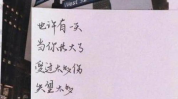 也许有一天
当你长大了
受过太多伤
失望太多